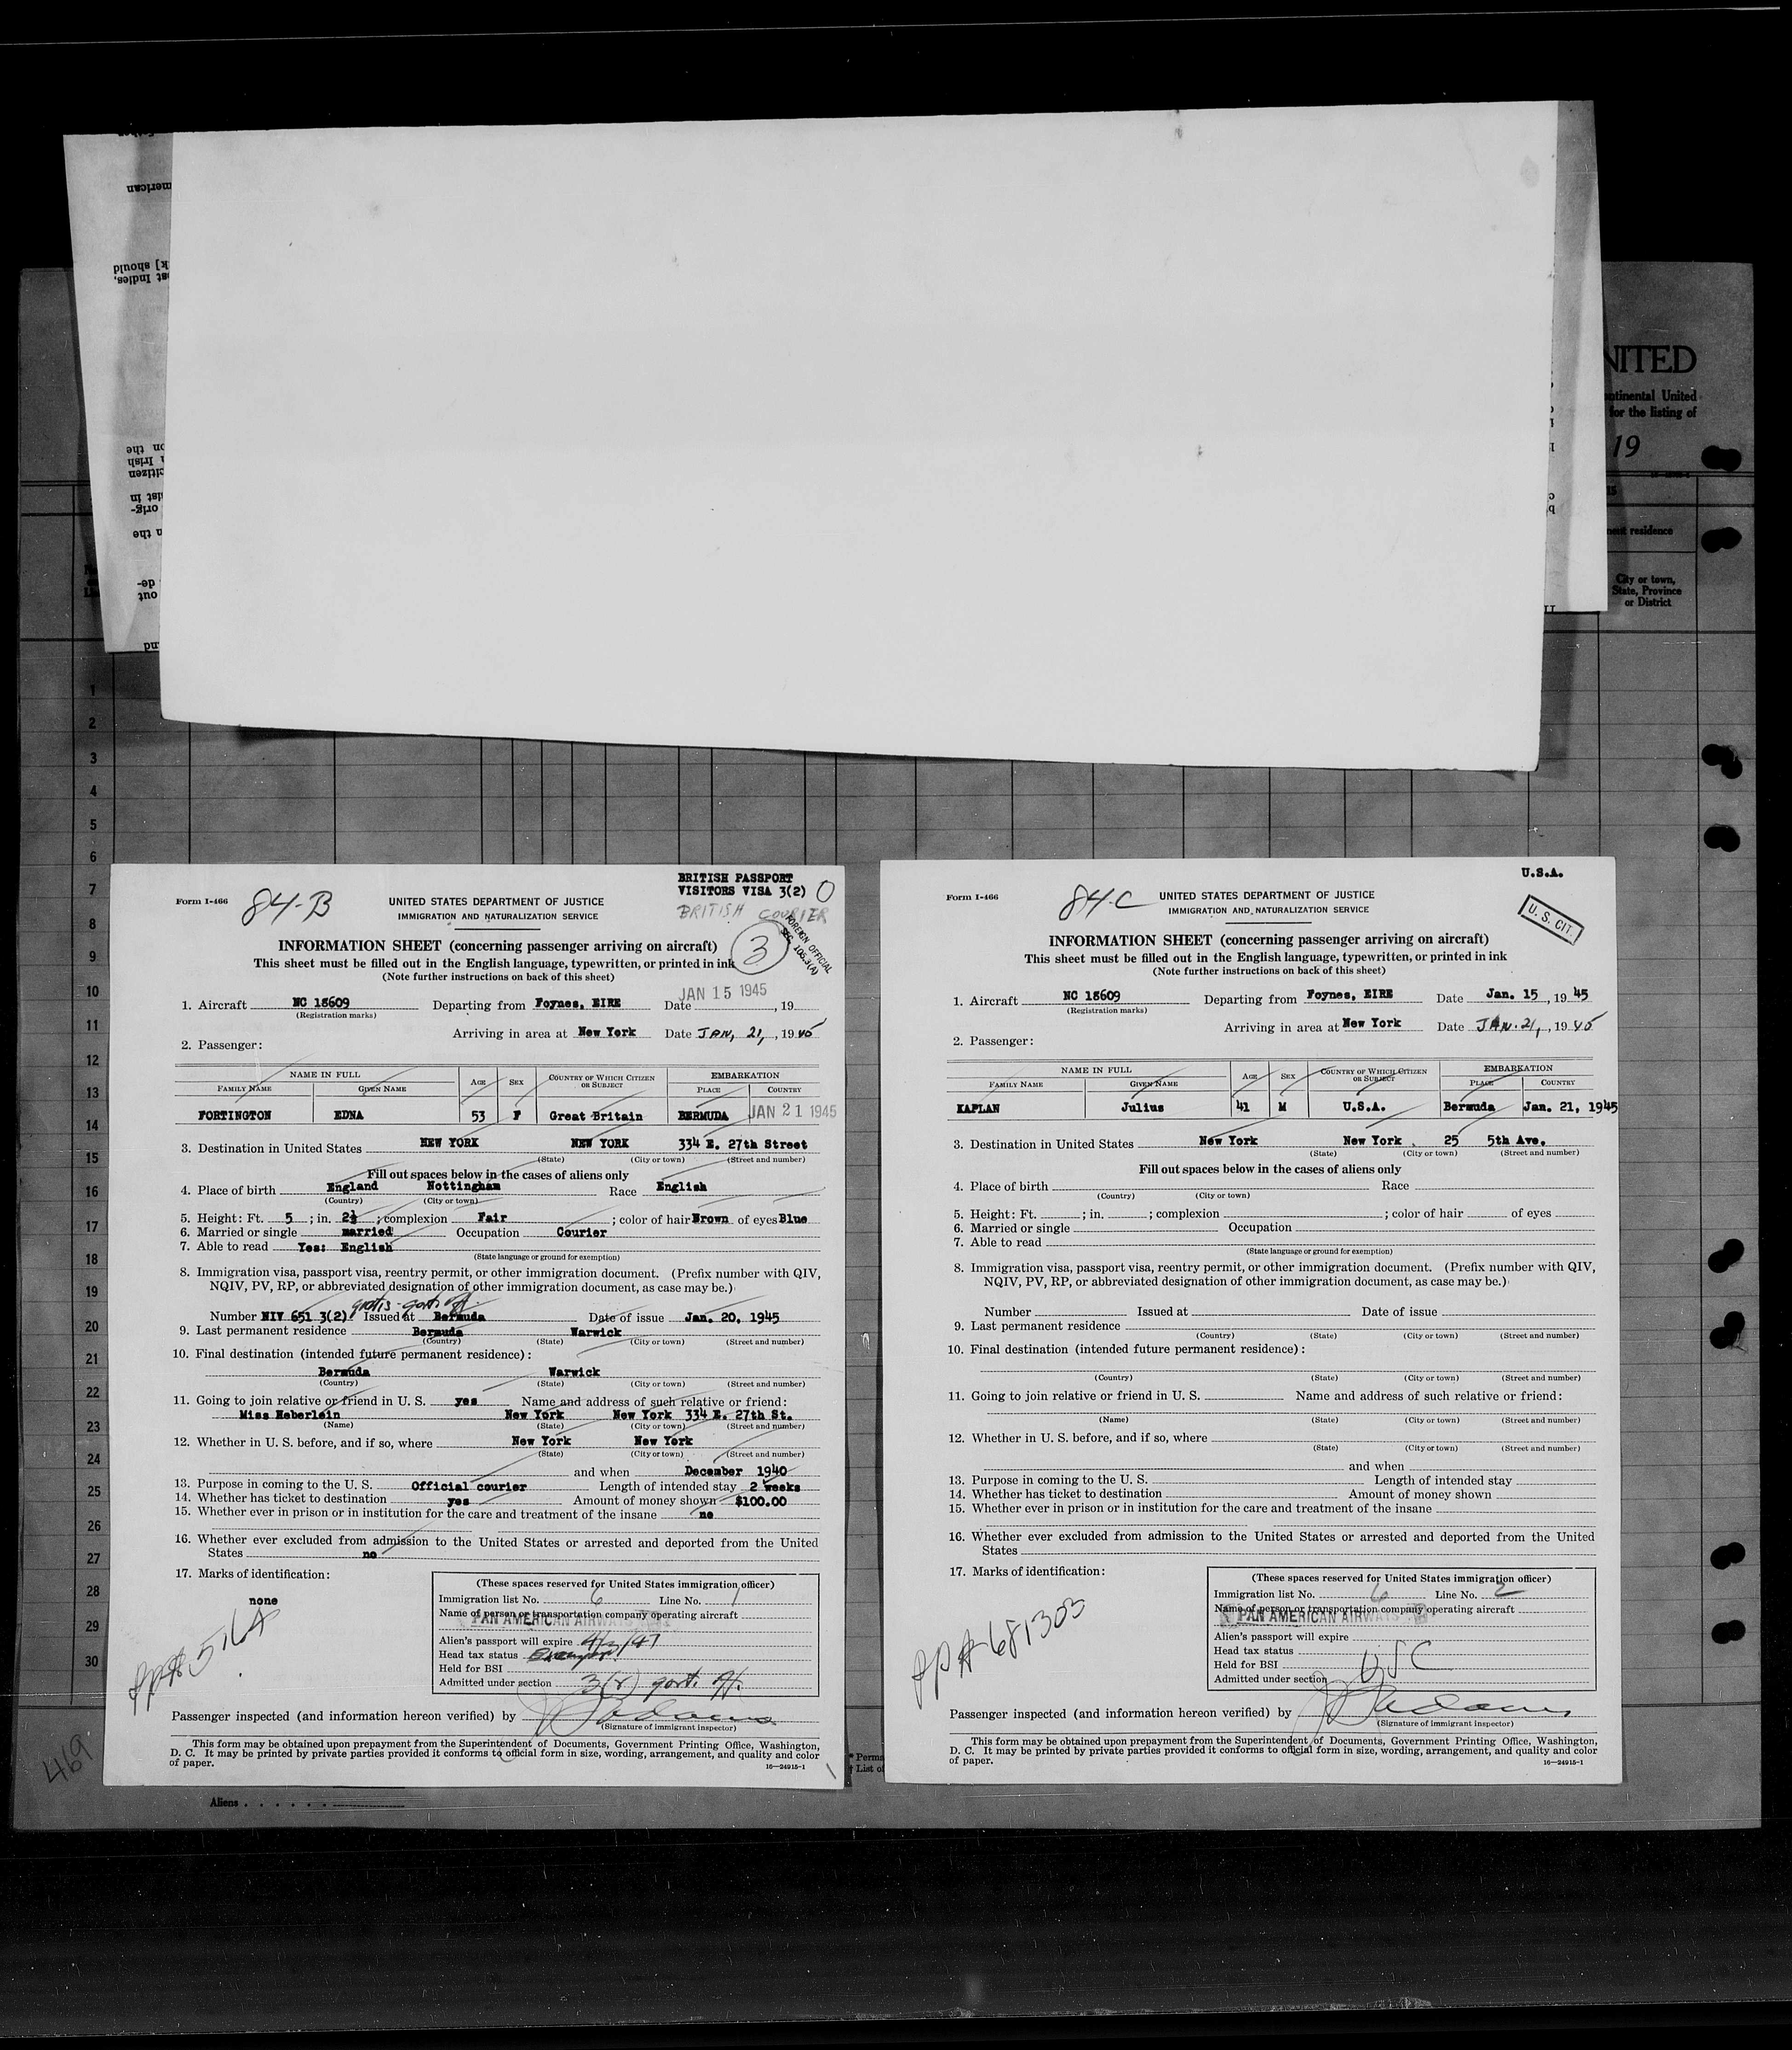 NITED
ontinental United
for the listing of
19
nent residence
City or town,
State, Province
or District
1
2
3
4
5
6
7
8
9
10
11
12
13
14
15
16
17
18
19
20
21
22
23
24
25
26
27
28
29
30
469
Aliens . . . . . .
BRITISH PASSPORT
VISITORS VISA 3(2) O
BRITISH COURIER
Form I-466
84-B
UNITED STATES DEPARTMENT OF JUSTICE
IMMIGRATION AND NATURALIZATION SERVICE
FOREIGN OFFICIAL
SEC 105.3(A)
3
INFORMATION SHEET (concerning passenger arriving on aircraft)
This sheet must be filled out in the English language, typewritten, or printed in ink
(Note further instructions on back of this sheet)
JAN 15 1945
1. Aircraft NC 18609 Departing from Foynes, EIRE Date , 19
(Registration marks)
Arriving in area at New York Date JAN, 21, , 19 45
2. Passenger:
NAME IN FULL AGE SEX COUNTRY OF WHICH CITIZEN OR SUBJECT EMBARKATION
FAMILY NAME GIVEN NAME PLACE COUNTRY
FORTINGTON EDNA 53 F Great Britain BERMUDA JAN 21 1945
3. Destination in United States NEW YORK NEW YORK 334 E. 27th Street
(State) (City or town) (Street and number)
Fill out spaces below in the cases of aliens only
4. Place of birth England Nottingham Race English
(Country) (City or town)
5. Height: Ft. 5 ; in. 2½ ; complexion Fair ; color of hair Brown of eyes Blue
6. Married or single married Occupation Courier
7. Able to read Yes: English
(State language or ground for exemption)
8. Immigration visa, passport visa, reentry permit, or other immigration document. (Prefix number with QIV,
NQIV, PV, RP, or abbreviated designation of other immigration document, as case may be.)
gratis-govt off.
Number NIV 651 3(2) Issued at Bermuda Date of issue Jan. 20, 1945
9. Last permanent residence Bermuda Warwick
(Country) (State) (City or town) (Street and number)
10. Final destination (intended future permanent residence):
Bermuda Warwick
(Country) (State) (City or town) (Street and number)
11. Going to join relative or friend in U. S. yes Name and address of such relative or friend:
Miss Heberlein New York New York 334 E. 27th St.
(Name) (State) (City or town) (Street and number)
12. Whether in U. S. before, and if so, where New York New York
(State) (City or town) (Street and number)
and when December 1940
13. Purpose in coming to the U. S. Official courier Length of intended stay 2 weeks
14. Whether has ticket to destination yes Amount of money shown $100.00
15. Whether ever in prison or in institution for the care and treatment of the insane no
16. Whether ever excluded from admission to the United States or arrested and deported from the United
States no
17. Marks of identification:
none
pp# 5164
(These spaces reserved for United States immigration officer)
Immigration list No. 6 Line No. 1
Name of person or transportation company operating aircraft
PAN AMERICAN AIRWAYS
Alien's passport will expire
Head tax status Exempt
Held for BSI
Admitted under section govt. off.
Passenger inspected (and information hereon verified) by
(Signature of immigrant inspector)
This form may be obtained upon prepayment from the Superintendent of Documents, Government Printing Office, Washington,
D. C. It may be printed by private parties provided it conforms to official form in size, wording, arrangement, and quality and color
of paper. 16—24915-1
* Perma
† List of
U.S.A.
Form I-466
84-C
UNITED STATES DEPARTMENT OF JUSTICE
IMMIGRATION AND NATURALIZATION SERVICE
U. S. CIT.
INFORMATION SHEET (concerning passenger arriving on aircraft)
This sheet must be filled out in the English language, typewritten, or printed in ink
(Note further instructions on back of this sheet)
1. Aircraft NC 18609 Departing from Foynes, EIRE Date Jan. 15 , 19 45
(Registration marks)
Arriving in area at New York Date JAN. 21, , 19 45
2. Passenger:
NAME IN FULL AGE SEX COUNTRY OF WHICH CITIZEN OR SUBJECT EMBARKATION
FAMILY NAME GIVEN NAME PLACE COUNTRY
KAPLAN Julius 41 M U.S.A. Bermuda Jan. 21, 1945
3. Destination in United States New York New York 25 5th Ave.
(State) (City or town) (Street and number)
Fill out spaces below in the cases of aliens only
4. Place of birth Race
(Country) (City or town)
5. Height: Ft. ; in. ; complexion ; color of hair of eyes
6. Married or single Occupation
7. Able to read
(State language or ground for exemption)
8. Immigration visa, passport visa, reentry permit, or other immigration document. (Prefix number with QIV,
NQIV, PV, RP, or abbreviated designation of other immigration document, as case may be.)
Number Issued at Date of issue
9. Last permanent residence
(Country) (State) (City or town) (Street and number)
10. Final destination (intended future permanent residence):
(Country) (State) (City or town) (Street and number)
11. Going to join relative or friend in U. S. Name and address of such relative or friend:
(Name) (State) (City or town) (Street and number)
12. Whether in U. S. before, and if so, where
(State) (City or town) (Street and number)
and when
13. Purpose in coming to the U. S. Length of intended stay
14. Whether has ticket to destination Amount of money shown
15. Whether ever in prison or in institution for the care and treatment of the insane
16. Whether ever excluded from admission to the United States or arrested and deported from the United
States
17. Marks of identification:
pp# 681303
(These spaces reserved for United States immigration officer)
Immigration list No. 6 Line No. 2
Name of person or transportation company operating aircraft
PAN AMERICAN AIRWAYS
Alien's passport will expire
Head tax status
Held for BSI
Admitted under section USC
Passenger inspected (and information hereon verified) by
(Signature of immigrant inspector)
This form may be obtained upon prepayment from the Superintendent of Documents, Government Printing Office, Washington,
D. C. It may be printed by private parties provided it conforms to official form in size, wording, arrangement, and quality and color
of paper. 16—24915-1